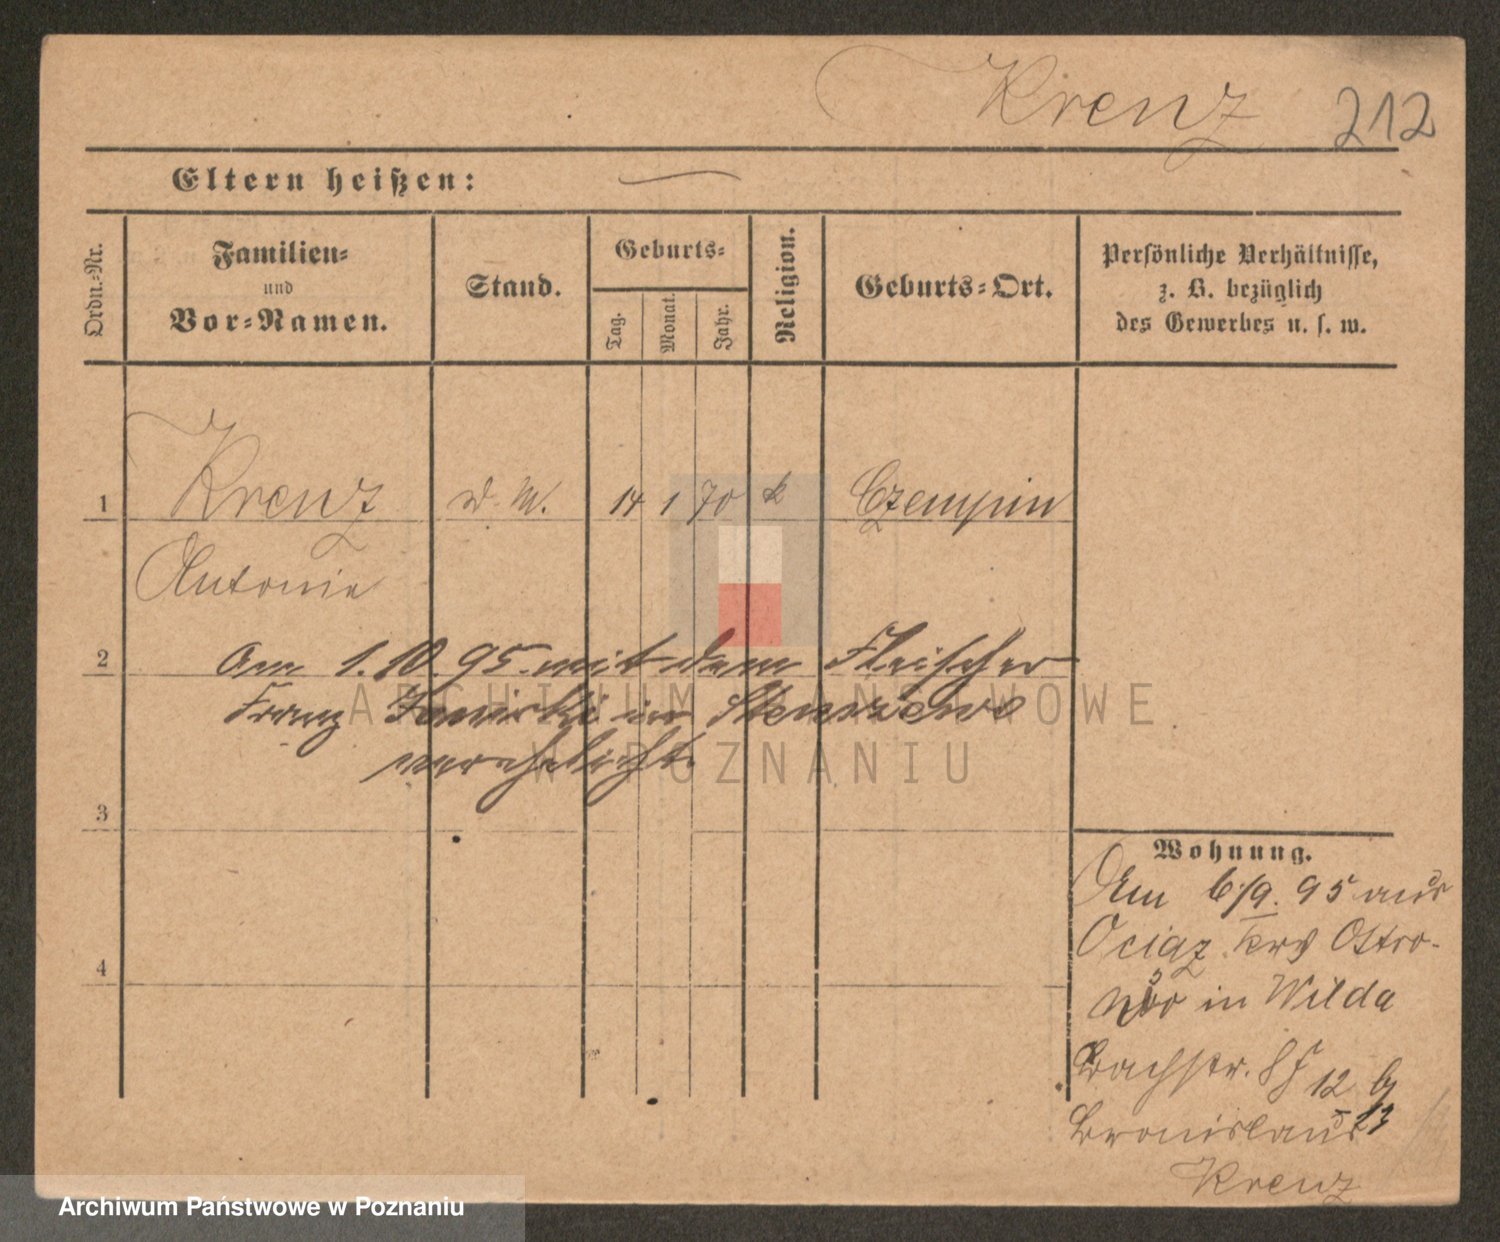 Krenz 212
Eltern heißen:
Ordn.-Nr.
Familien-
und
Vor-Namen.
Stand.
Geburts-
Tag.
Monat.
Jahr.
Religion.
Geburts-Ort.
Persönliche Verhältnisse,
z. B. bezüglich
des Gewerbes u. s. w.
1 Krenz d. M. 14 1 70 k Czempin
Antonie
2 Am 1.10.95. mit dem Fleischer
Franz in Stenszewo
verehelicht.
3
Wohnung.
Am 6/9. 95 aus
Ociąz Krs Ostro-
wo in Wilda
4
Bachstr. 12 b
Bronislaus
Krenz
ARCHIWUM PAŃSTWOWE
W POZNANIU
Archiwum Państwowe w Poznaniu